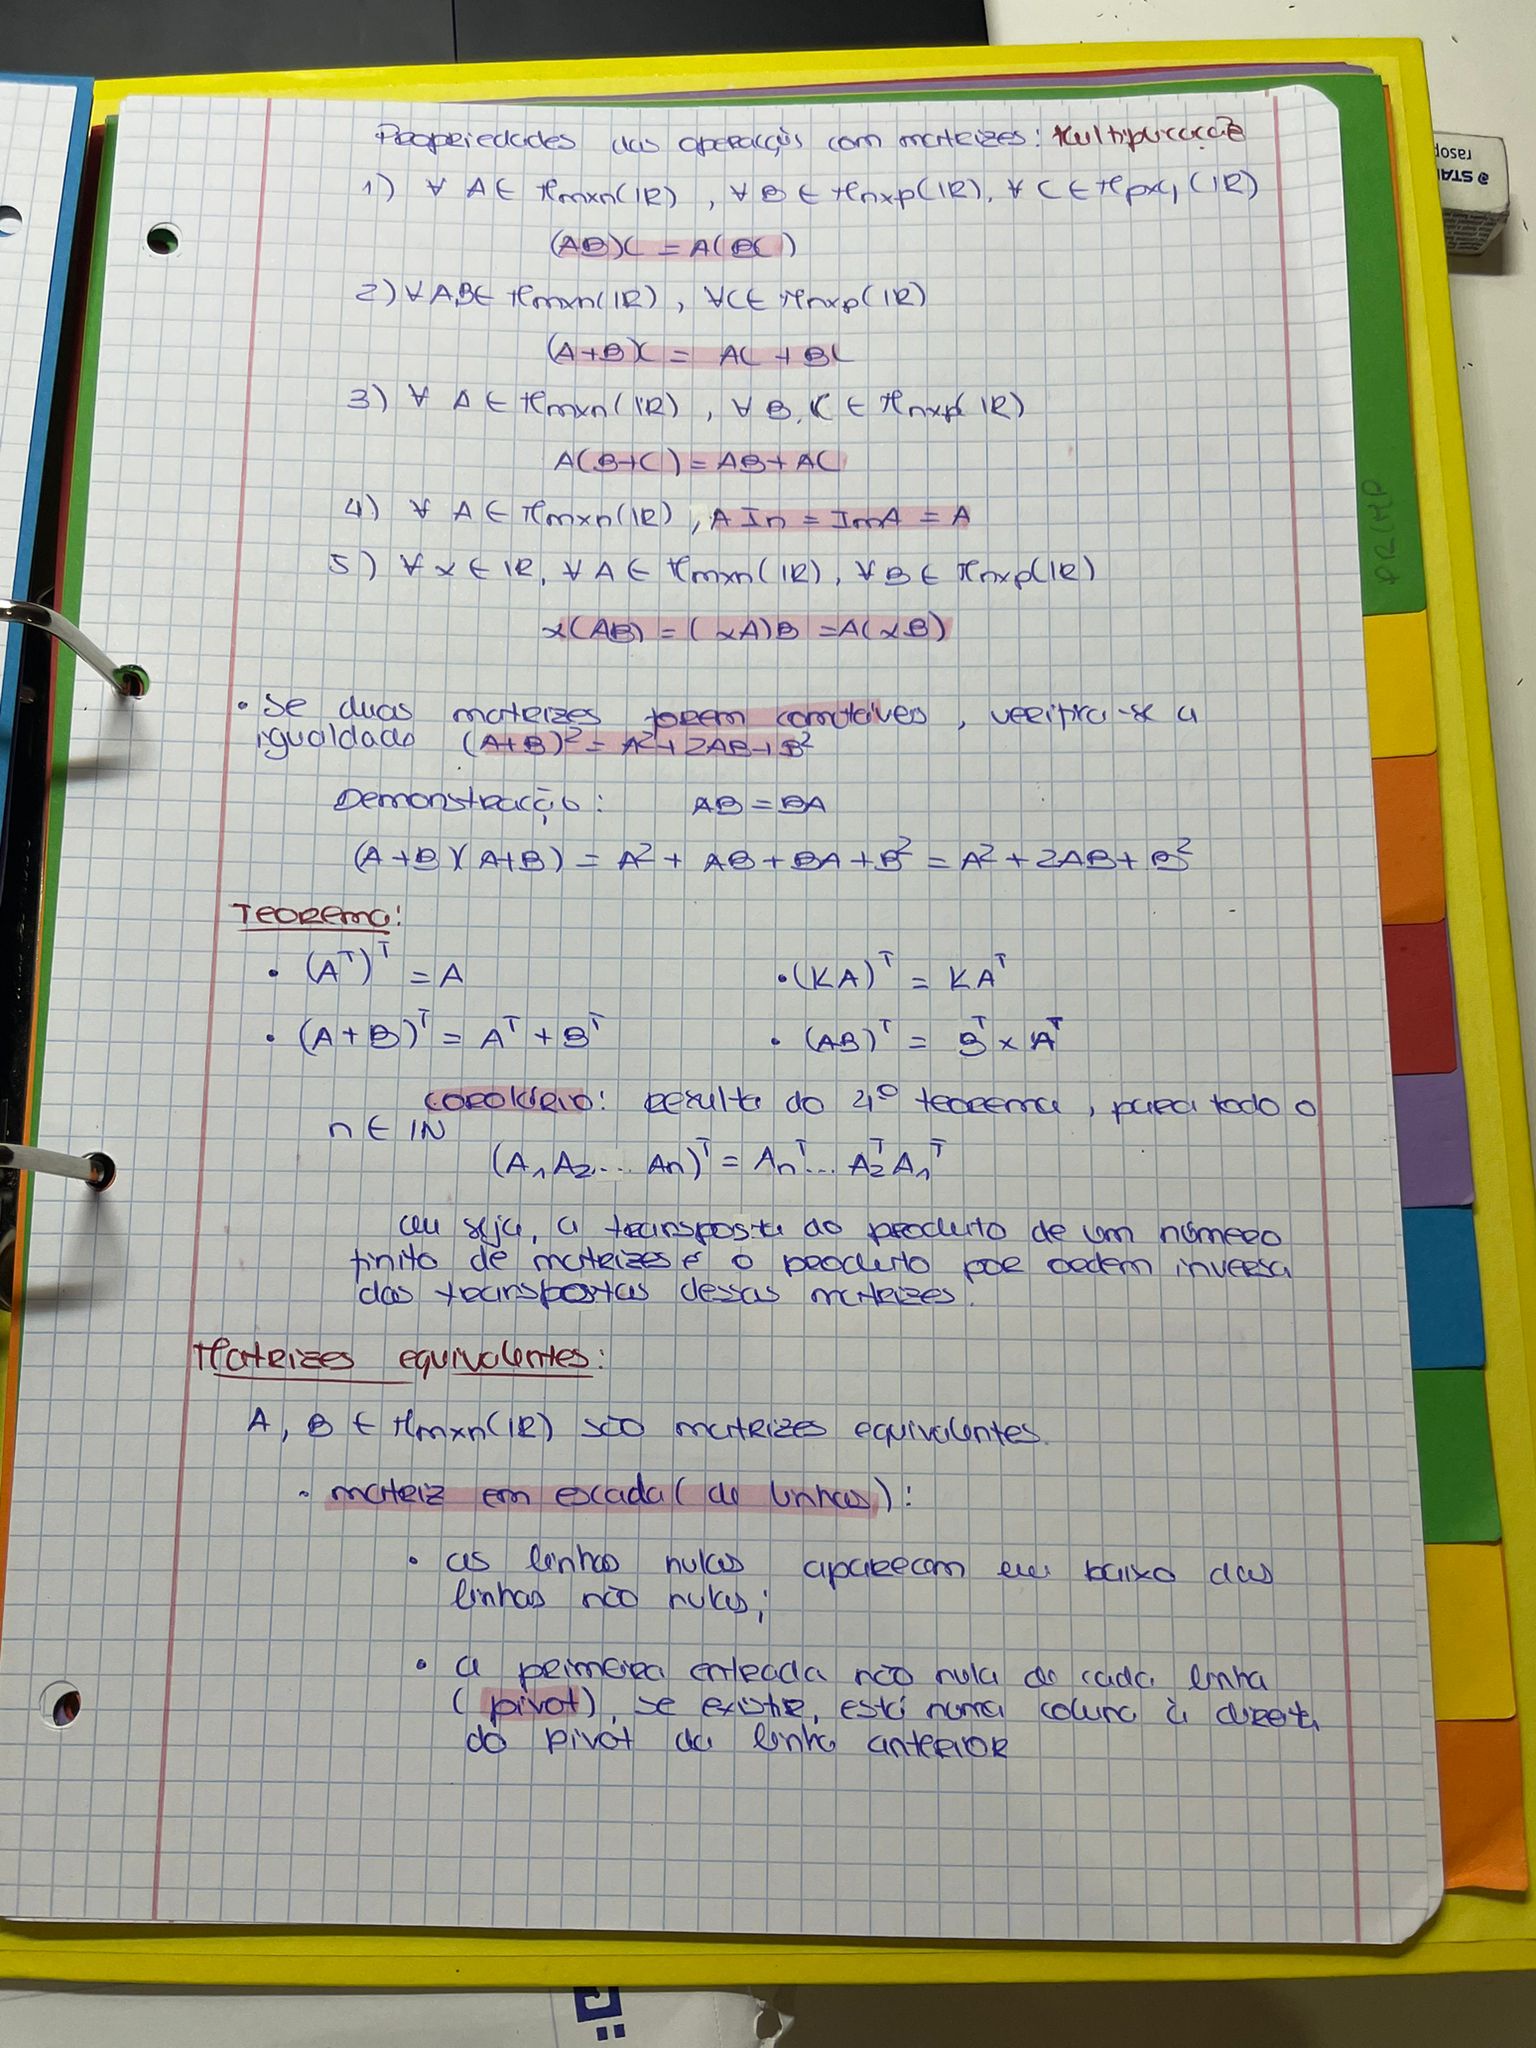 Propriedades das operações com matrizes: Multiplicação
1) ∀ A ∈ Mmxn(IR), ∀ B ∈ Mnxp(IR), ∀ C ∈ Mpxq(IR)
(AB)C = A(BC)
2) ∀ A,B ∈ Mmxn(IR), ∀C ∈ Mnxp(IR)
(A+B)C = AC + BC
3) ∀ A ∈ Mmxn(IR), ∀ B, C ∈ Mnxp(IR)
A(B+C) = AB + AC
4) ∀ A ∈ Mmxn(IR), A In = ImA = A
5) ∀ α ∈ IR, ∀ A ∈ Mmxn(IR), ∀ B ∈ Mnxp(IR)
α(AB) = (αA)B = A(αB)
• Se duas matrizes forem comutáveis, verifica-se a
igualdade (A+B)² = A² + 2AB + B²
Demonstração: AB = BA
(A+B)(A+B) = A² + AB + BA + B² = A² + 2AB + B²
Teorema:
• (Aᵀ)ᵀ = A • (KA)ᵀ = KAᵀ
• (A+B)ᵀ = Aᵀ + Bᵀ • (AB)ᵀ = Bᵀ x Aᵀ
corolário: resulta do 4º teorema, para todo o
n ∈ IN
(A₁A₂... An)ᵀ = Anᵀ... A₂ᵀA₁ᵀ
ou seja, a transposta do produto de um número
finito de matrizes é o produto por ordem inversa
das transpostas dessas matrizes.
Matrizes equivalentes:
A, B ∈ Mmxn(IR) são matrizes equivalentes.
• matriz em escada (de linhas):
• as linhas nulas aparecem em baixo das
linhas não nulas;
• a primeira entrada não nula de cada linha
(pivot), se existir, está numa coluna à direita
do pivot da linha anterior